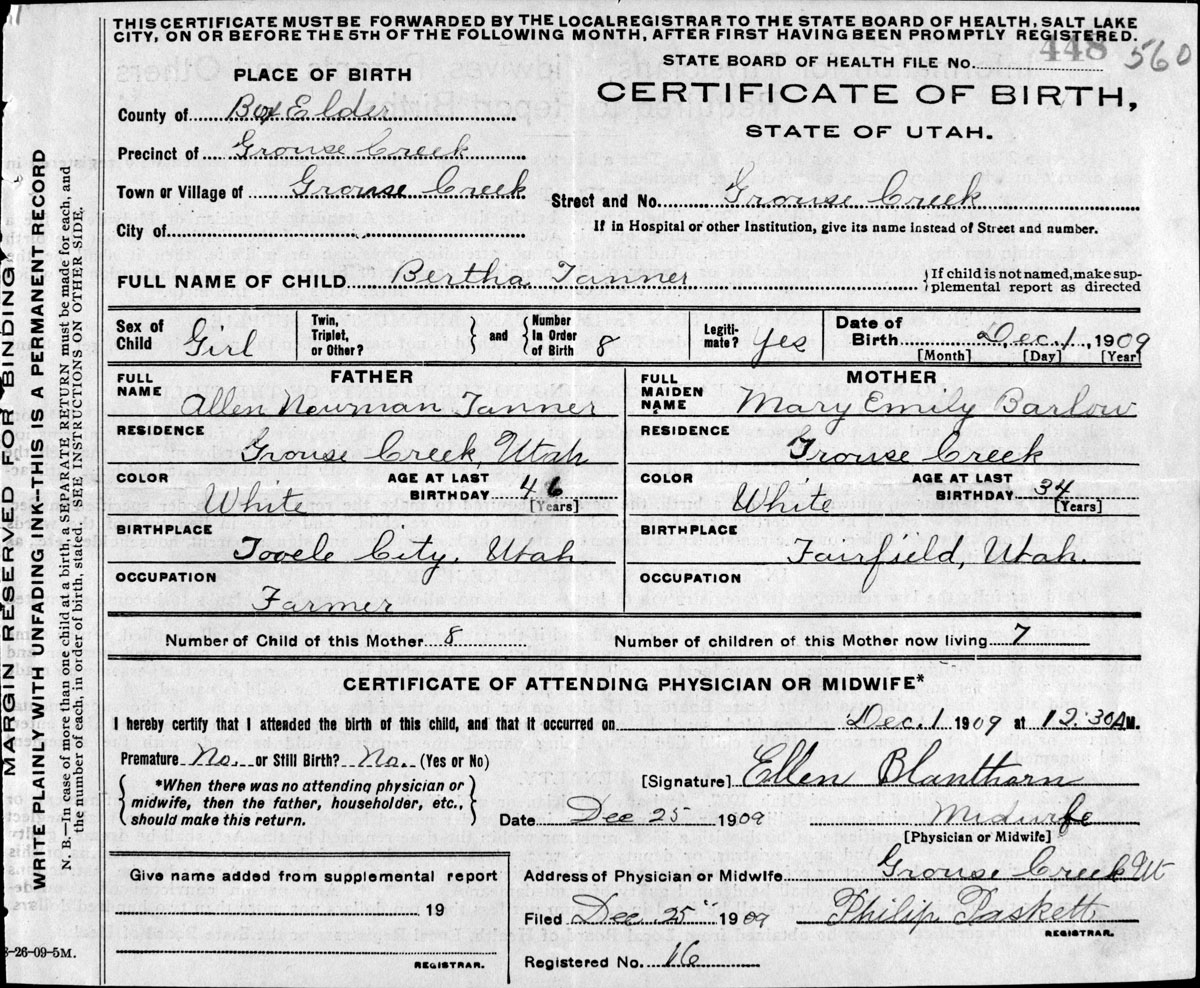 THIS CERTIFICATE MUST BE FORWARDED BY THE LOCALREGISTRAR TO THE STATE BOARD OF HEALTH, SALT LAKE
CITY, ON OR BEFORE THE 5TH OF THE FOLLOWING MONTH, AFTER FIRST HAVING BEEN PROMPTLY REGISTERED.
STATE BOARD OF HEALTH FILE No. 448 560
PLACE OF BIRTH
CERTIFICATE OF BIRTH,
STATE OF UTAH.
County of Box Elder
Precinct of Grouse Creek
Town or Village of Grouse Creek
Street and No. Grouse Creek
City of
If in Hospital or other Institution, give its name instead of Street and number.
FULL NAME OF CHILD Bertha Tanner
{If child is not named, make sup-
plemental report as directed
Sex of Child Girl
Twin, Triplet, or Other?
and
Number In Order of Birth 8
Legiti-mate? Yes
Date of Birth Dec. 1, 1909
[Month] [Day] [Year]
FATHER
FULL NAME Allen Newman Tanner
RESIDENCE Grouse Creek, Utah
COLOR White
AGE AT LAST BIRTHDAY 46
[Years]
BIRTHPLACE Tooele City, Utah
OCCUPATION Farmer
MOTHER
FULL MAIDEN NAME Mary Emily Barlow
RESIDENCE Grouse Creek
COLOR White
AGE AT LAST BIRTHDAY 34
[Years]
BIRTHPLACE Fairfield, Utah.
OCCUPATION
Number of Child of this Mother 8
Number of children of this Mother now living 7
CERTIFICATE OF ATTENDING PHYSICIAN OR MIDWIFE*
I hereby certify that I attended the birth of this child, and that it occurred on Dec. 1 1909 at 12.30 A M.
Premature No. or Still Birth? No. (Yes or No)
*When there was no attending physician or
midwife, then the father, householder, etc.,
should make this return.
[Signature] Ellen Blanthorn
Date Dec 25 1909
Midwife
[Physician or Midwife]
Give name added from supplemental report
19
REGISTRAR.
Address of Physician or Midwife. Grouse Creek Ut
Filed Dec 25 1909 Philip Paskett
REGISTRAR.
Registered No. 16
-26-09-5M.
MARGIN RESERVED FOR BINDING
WRITE PLAINLY WITH UNFADING INK--THIS IS A PERMANENT RECORD
N. B.—In case of more than one child at a birth, a SEPARATE RETURN must be made for each, and
the number of each, in order of birth, stated. (SEE INSTRUCTIONS ON OTHER SIDE.